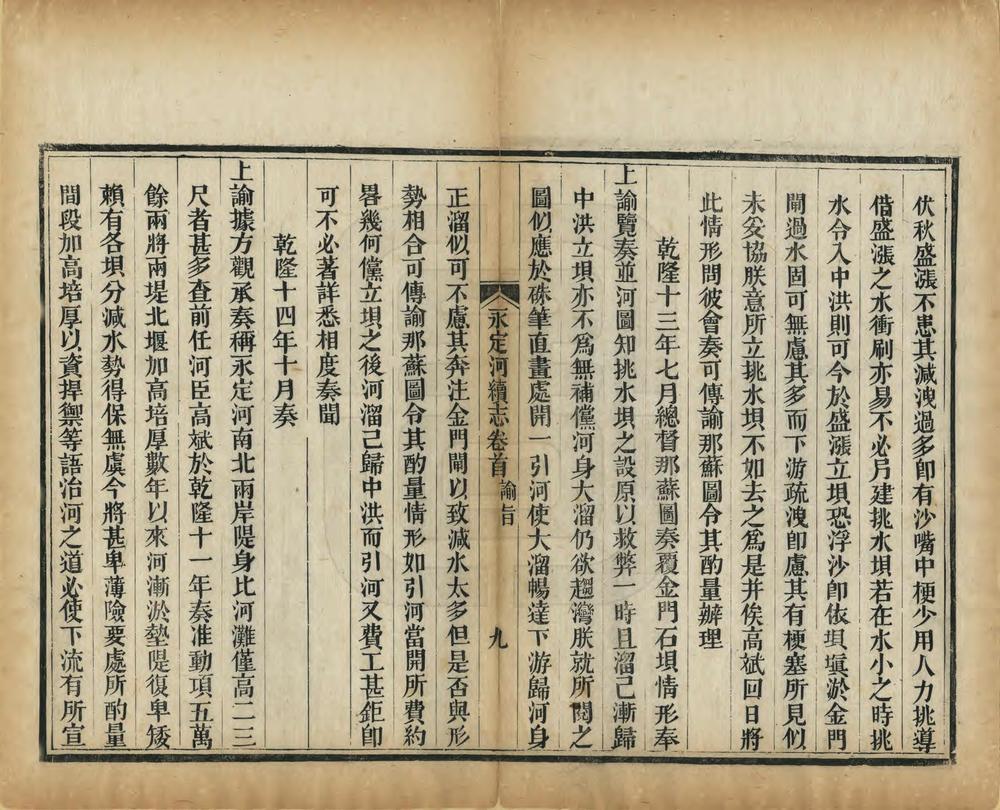 伏秋盛漲不患其減洩過多卽有沙嘴中梗少用人力挑導
借盛漲之水衝刷亦易不必另建挑水垻若在水小之時挑
水令入中洪則可今於盛漲立垻恐浮沙卽依垻塡淤金門
閘過水固可無慮其多而下游疏洩卽慮其有梗塞所見似
未妥協朕意所立挑水垻不如去之爲是并俟高斌回日將
此情形問彼會奏可傳諭那蘇圖令其酌量辦理
乾隆十三年七月總督那蘇圖奏覆金門石垻情形奉
上諭覽奏並河圖知挑水垻之設原以救弊一時且溜已漸歸
中洪立垻亦不爲無補儻河身大溜仍欲趨灣朕就所閱之
圖似應於硃筆直畫處開一引河使大溜暢達下游歸河身
永定河續志卷首 諭旨 九
正溜似可不慮其奔注金門閘以致減水太多但是否與形
勢相合可傳諭那蘇圖令其酌量情形如引河當開所費約
畧幾何儻立垻之後河溜已歸中洪而引河又費工甚鉅卽
可不必著詳悉相度奏聞
乾隆十四年十月奏
上諭據方觀承奏稱永定河南北兩岸隄身比河灘僅高二三
尺者甚多查前任河臣高斌於乾隆十一年奏准動項五萬
餘兩將兩堤北堰加高培厚數年以來河漸淤墊隄復卑矮
賴有各垻分減水勢得保無虞今將甚卑薄險要處所酌量
間段加高培厚以資捍禦等語治河之道必使下流有所宣